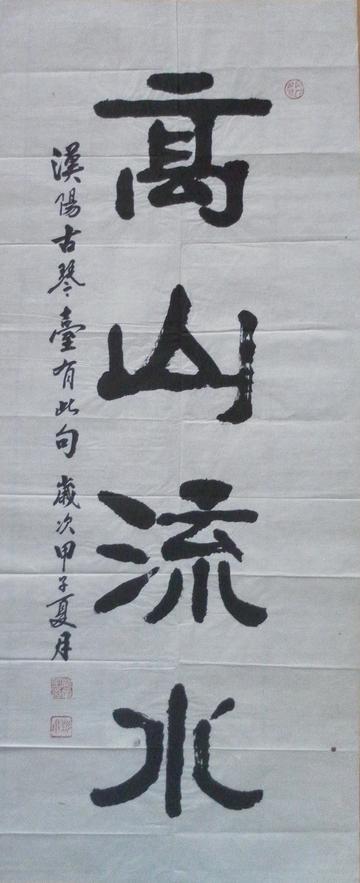 高山流水
漢陽古琴臺有此句 歲次甲子夏月